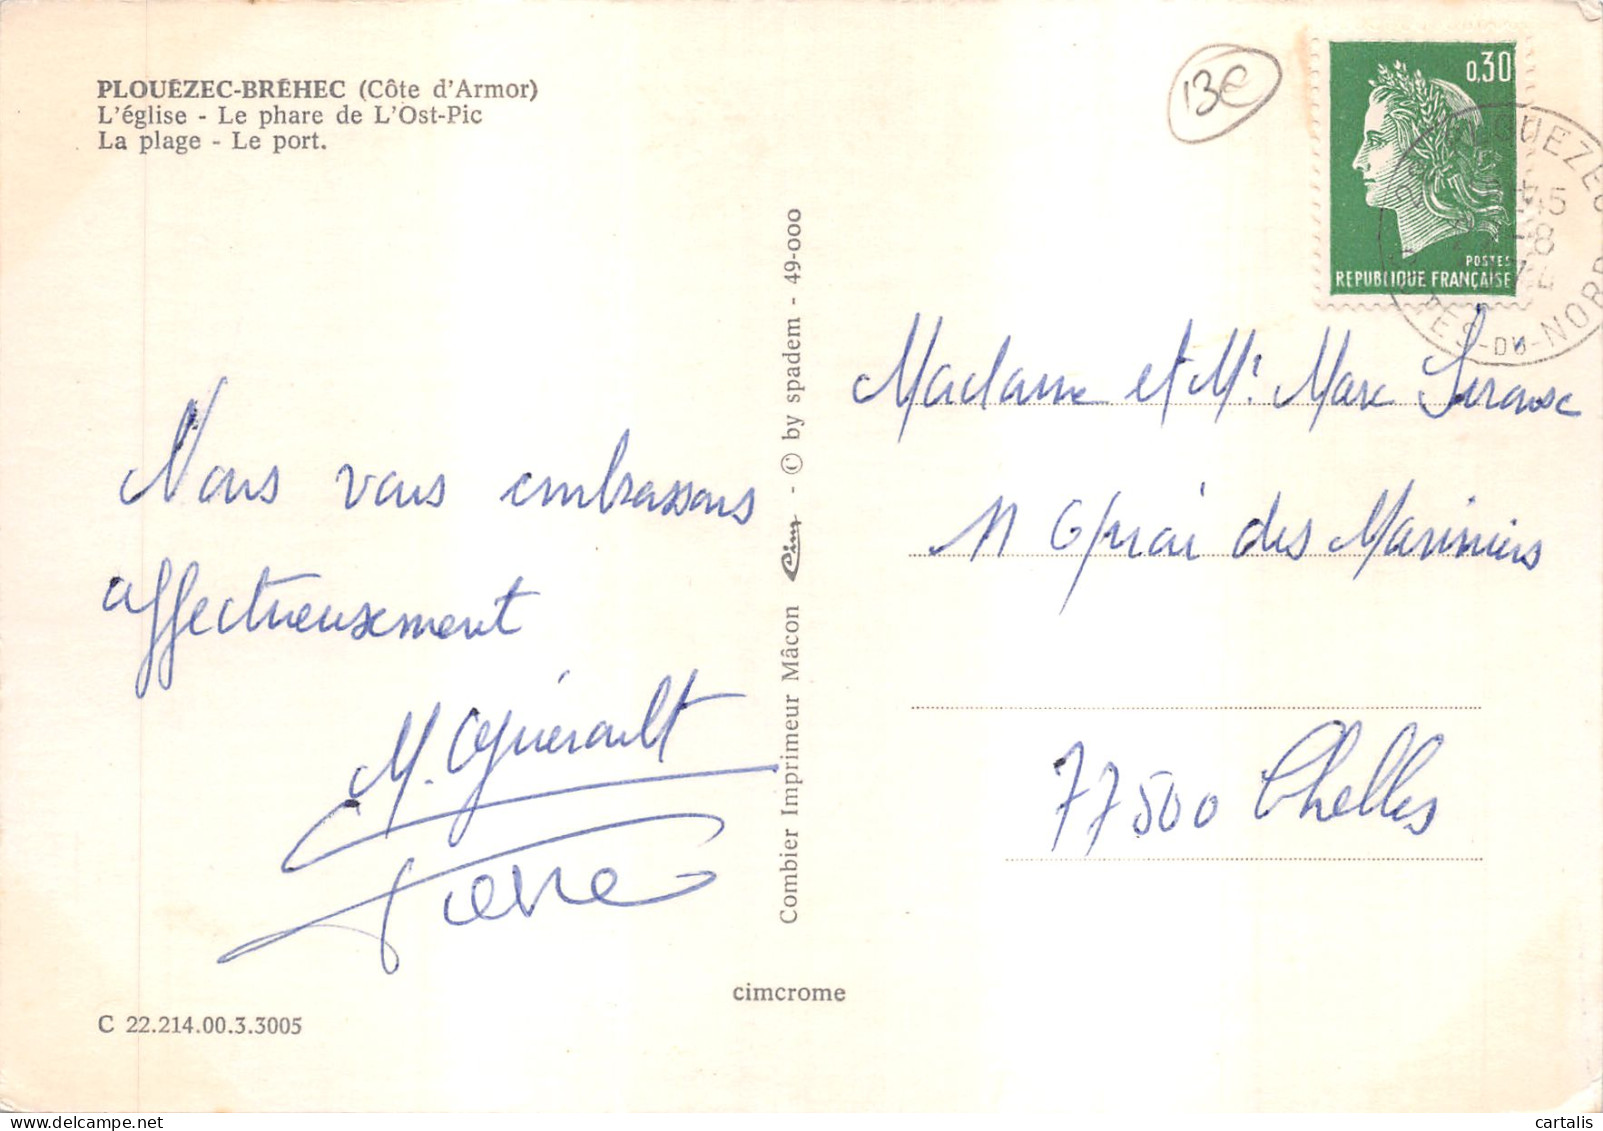 PLOUÉZEC-BRÉHEC (Côte d'Armor)
L'église - Le phare de L'Ost-Pic
La plage - Le port.
13€
0,30
POSTES
REPUBLIQUE FRANÇAISE
-8
COTES-DU-NORD
Nous vous embrassons
affectueusement
M. Guérault
Pierre
C 22.214.00.3.3005
Combier Imprimeur Mâcon Cim - © by spadem - 49-000
cimcrome
Madame et Mr Marc
11 Quai des Mariniers
77500 Chelles
cartalis
delcampe.net